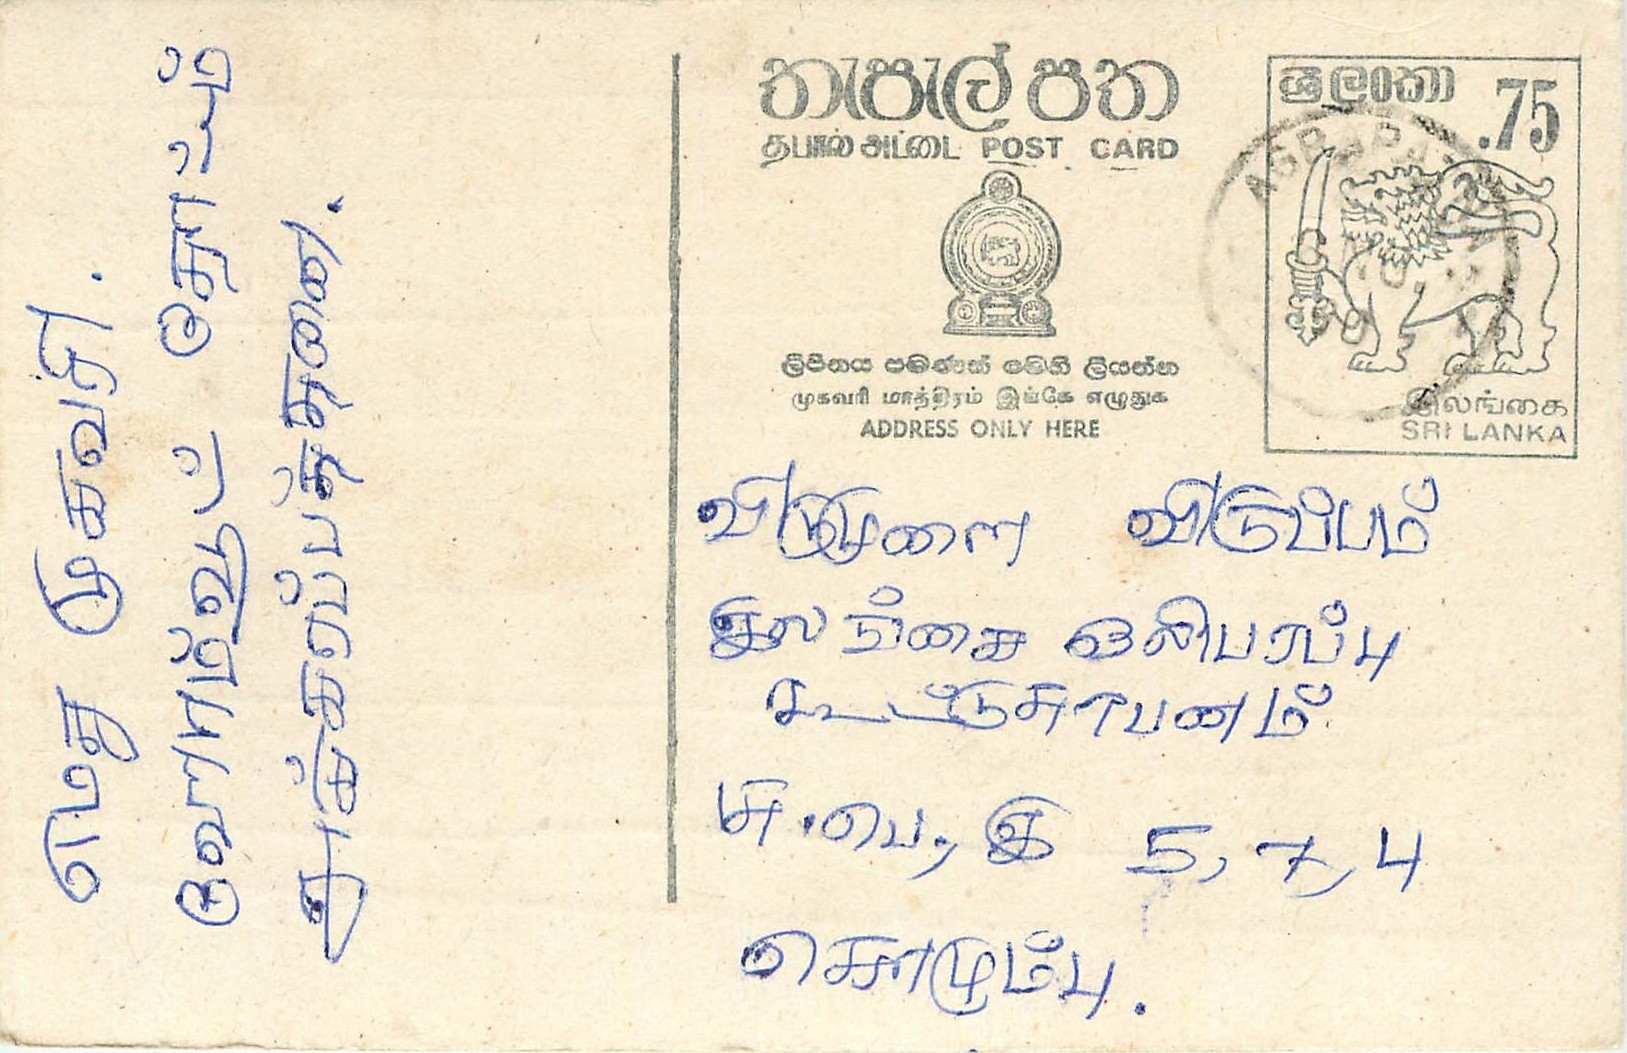 තැපැල් පත
தபால் அட்டை POST CARD
ශ්‍රී ලංකා .75
ලිපිනය පමණක් මෙහි ලියන්න
முகவரி மாத்திரம் இங்கே எழுதுக
ADDRESS ONLY HERE
இலங்கை
SRI LANKA
விடுமுறை விடுப்பம்
இலங்கை ஒலிபரப்பு
கூட்டுசாபனம்
த.பெ, இ 5, 7, 4
கொழும்பு.
எமது முகவரி.
தோட்டம்
அக்கரப்பத்தனை.